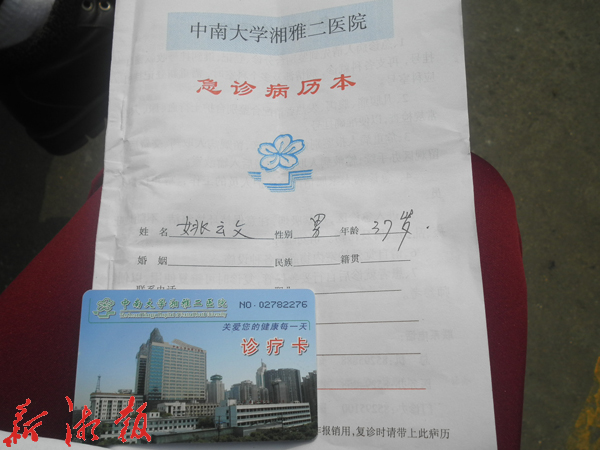 中南大学湘雅二医院
急诊病历本
姓 名 姚云文 性别 男 年龄 37岁.
婚 姻 民族 籍贯
联系电话
中南大学湘雅二医院 NO:02782276
关爱您的健康每一天
诊疗卡
报销用,复诊时请带上此病历
新湘报